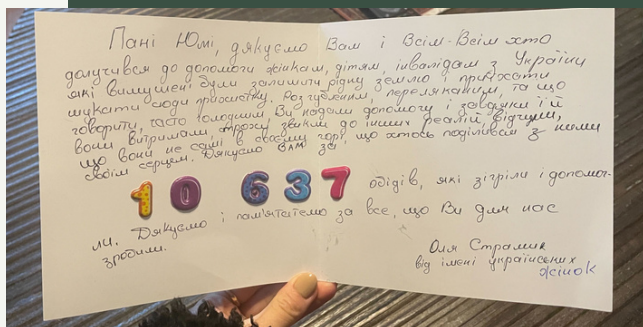 Пані Юмі, дякуємо Вам і Всім-Всім хто
долучився до допомоги жінкам, дітям, інвалідам з України
які вимушені були залишити рідну землю і приїхати
шукати сюди прихистку. Розгубленим, переляканим, та що
говорити, часто голодним, Ви надали допомогу і завдяки їй
вони витримали, трохи звикли до інших реалій, відчули,
що вони не самі в своєму горі, що хтось поділився з ними
своїм серцем. Дякуємо Вам за
10 637 обідів, які зігріли і допомог-
ли. Дякуємо і пам'ятаємо за все, що Ви для нас
зробили.
Оля Страмик
від імені українських
жінок